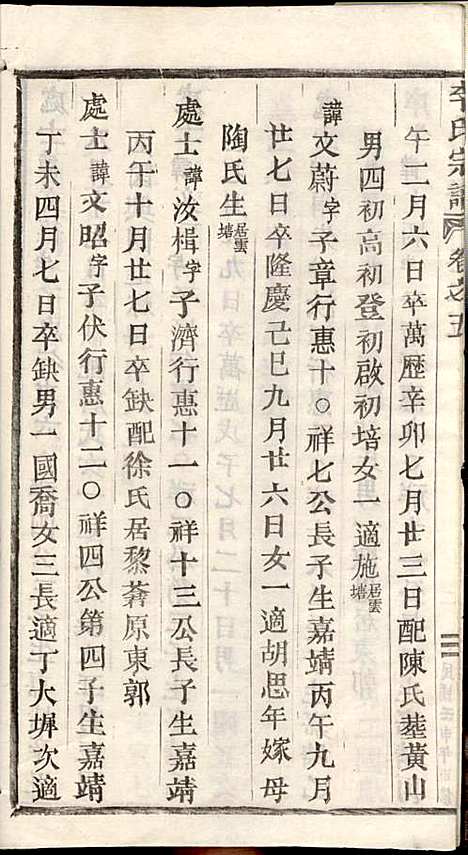 李氏宗譜 卷之五
午二月六日卒萬歷辛卯七月廿三日配陳氏塟黃山
男四初高初登初啟初培女一適施居雲塘
諱文蔚字子章行惠十〇祥七公長子生嘉靖丙午九月
廿七日卒隆慶己巳九月廿六日女一適胡思年嫁母
陶氏生居雲塘
處士諱汝楫字子濟行惠十一〇祥十三公長子生嘉靖
丙午十月廿七日卒缺配徐氏居黎蒼原東郭
處士諱文昭字子伏行惠十二〇祥四公第四子生嘉靖
丁未四月七日卒缺男一國喬女三長適丁大墀次適